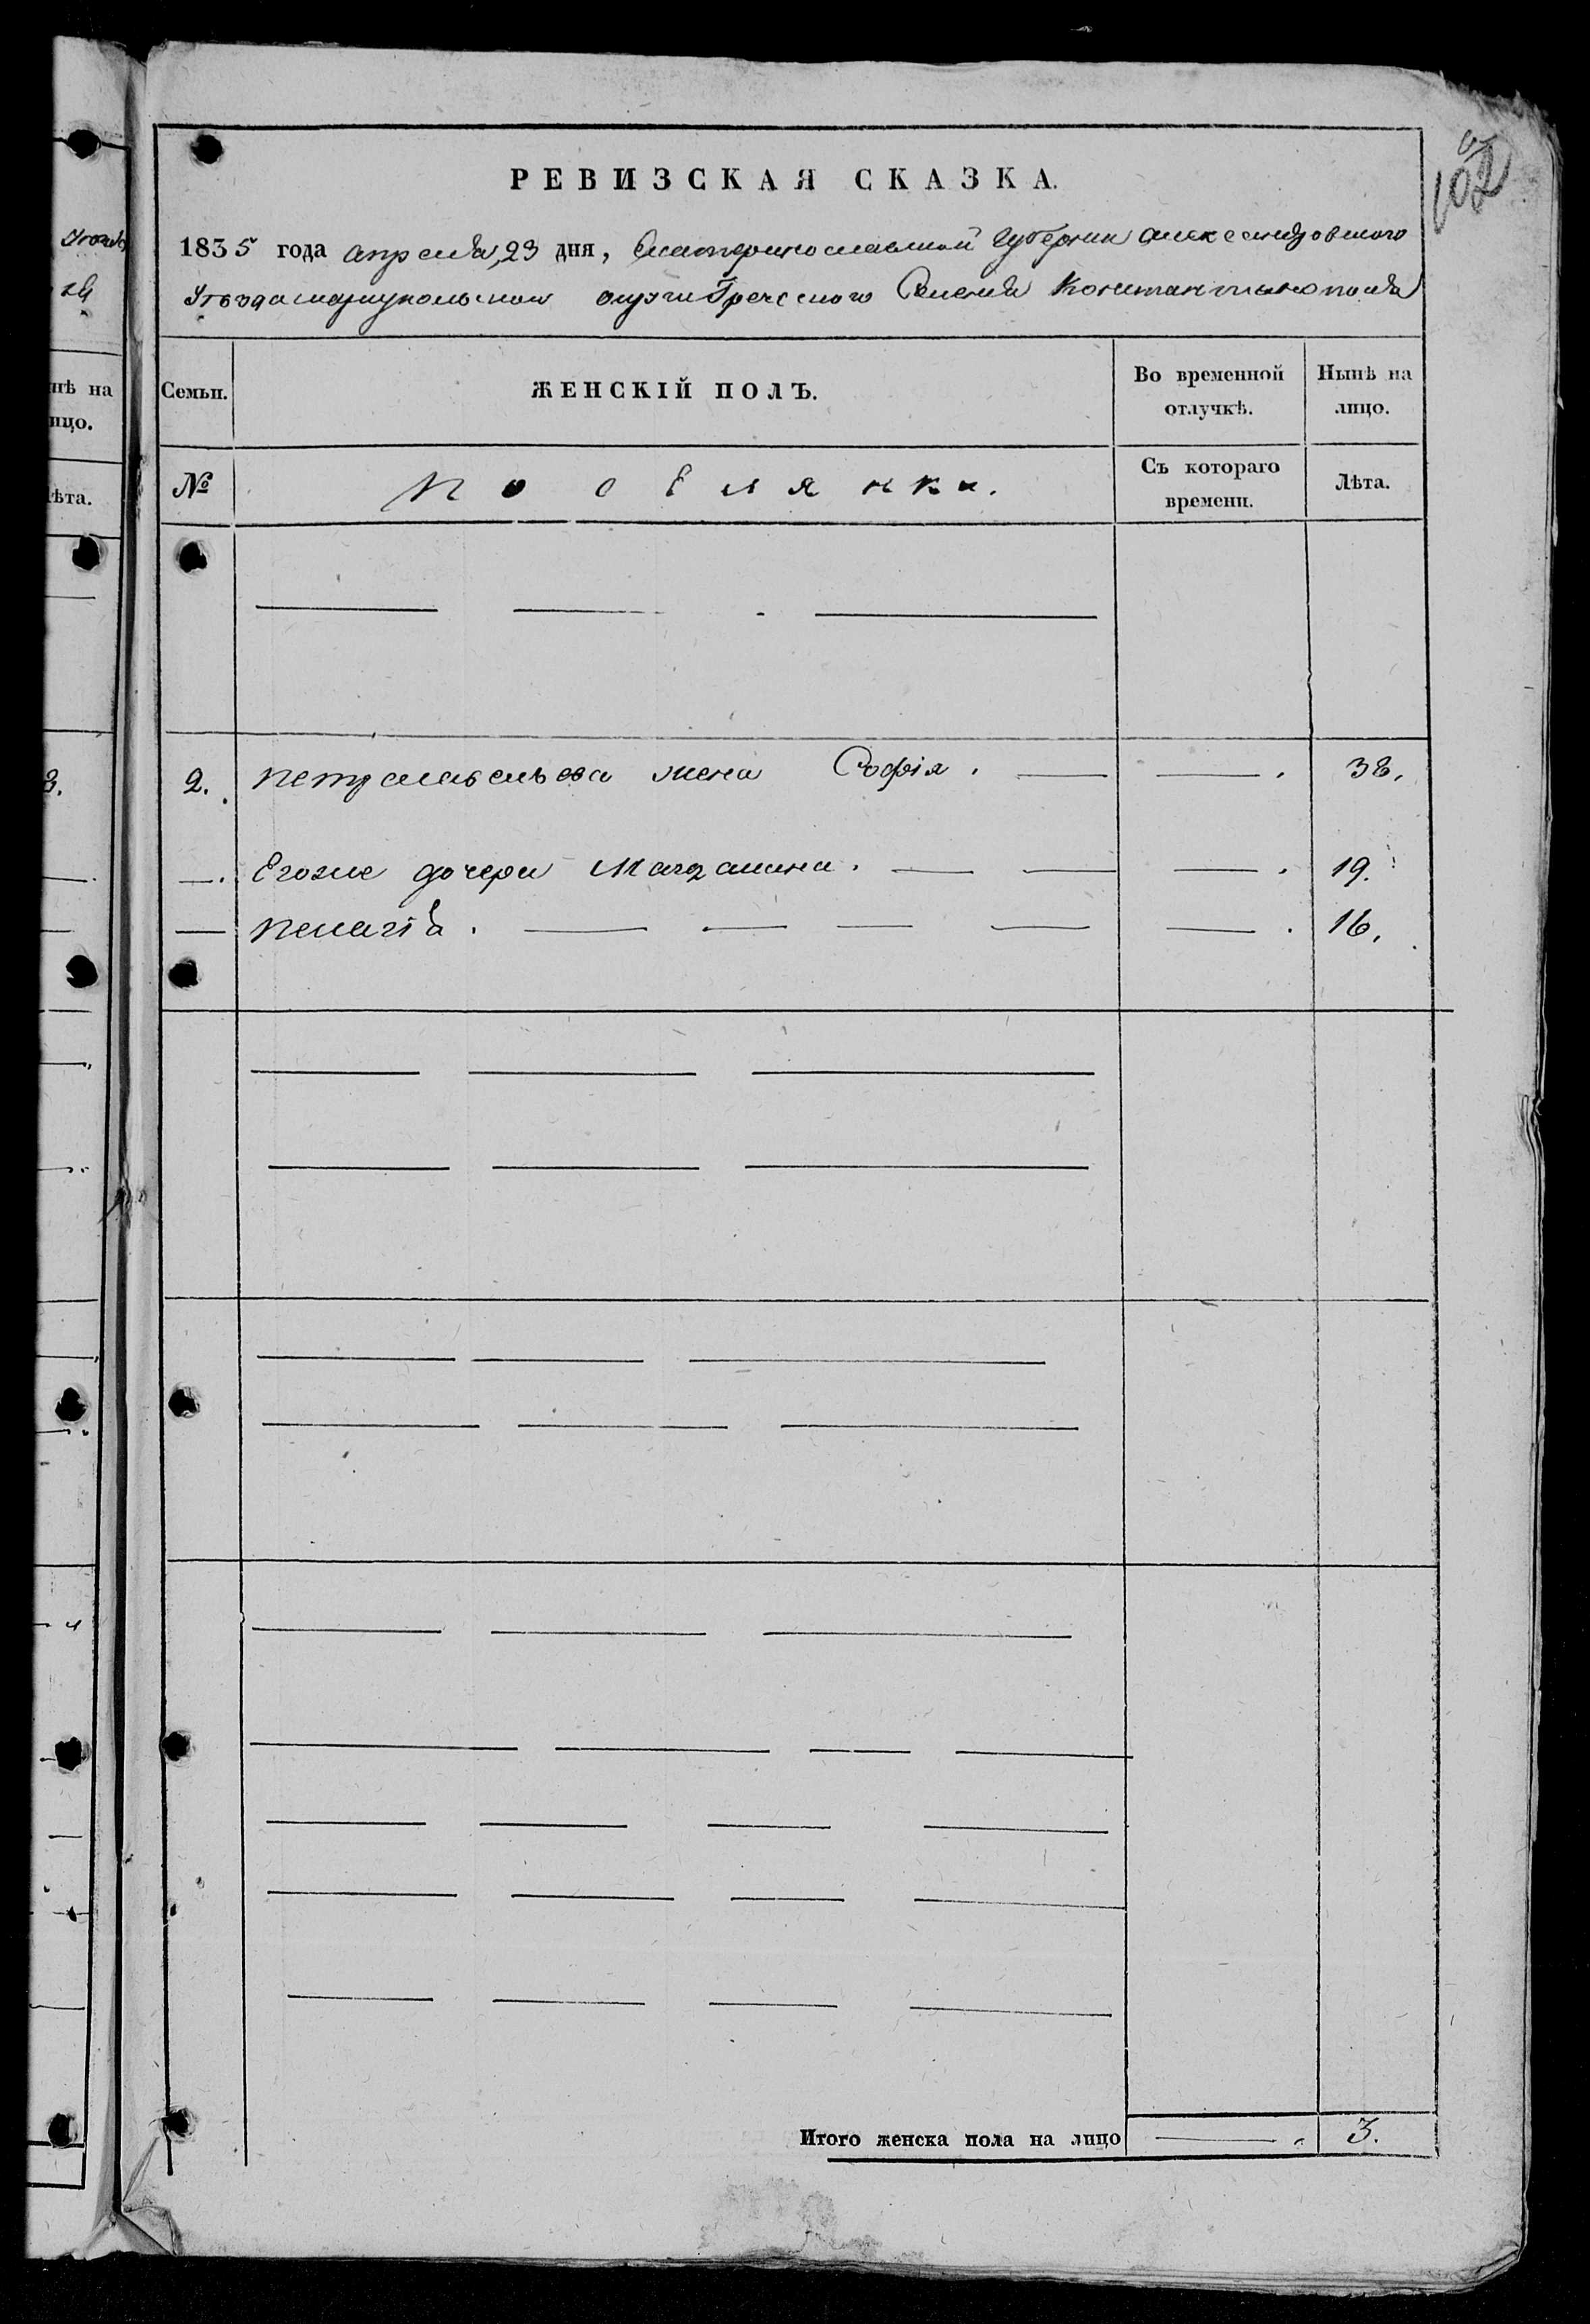 102
РЕВИЗСКАЯ СКАЗКА.
1835 года апреля 23 дня, Екатеринославской Губернии Александровского
Уезда Мариупольского округи Греческого Селения Константинополя
Семьи. ЖЕНСКІЙ ПОЛЪ. Во временной отлучкѣ. Нынѣ на лицо.
№ Поселянки. Съ котораго времени. Лѣта.
2. Петра Савельева жена Софія. — — . 38.
—. Егоже дочери Магдалина. — — — . 19.
— Пелагія. — — — — — . 16.
Итого женска пола на лицо — 3.
нѣ на
ицо.
ѣта.